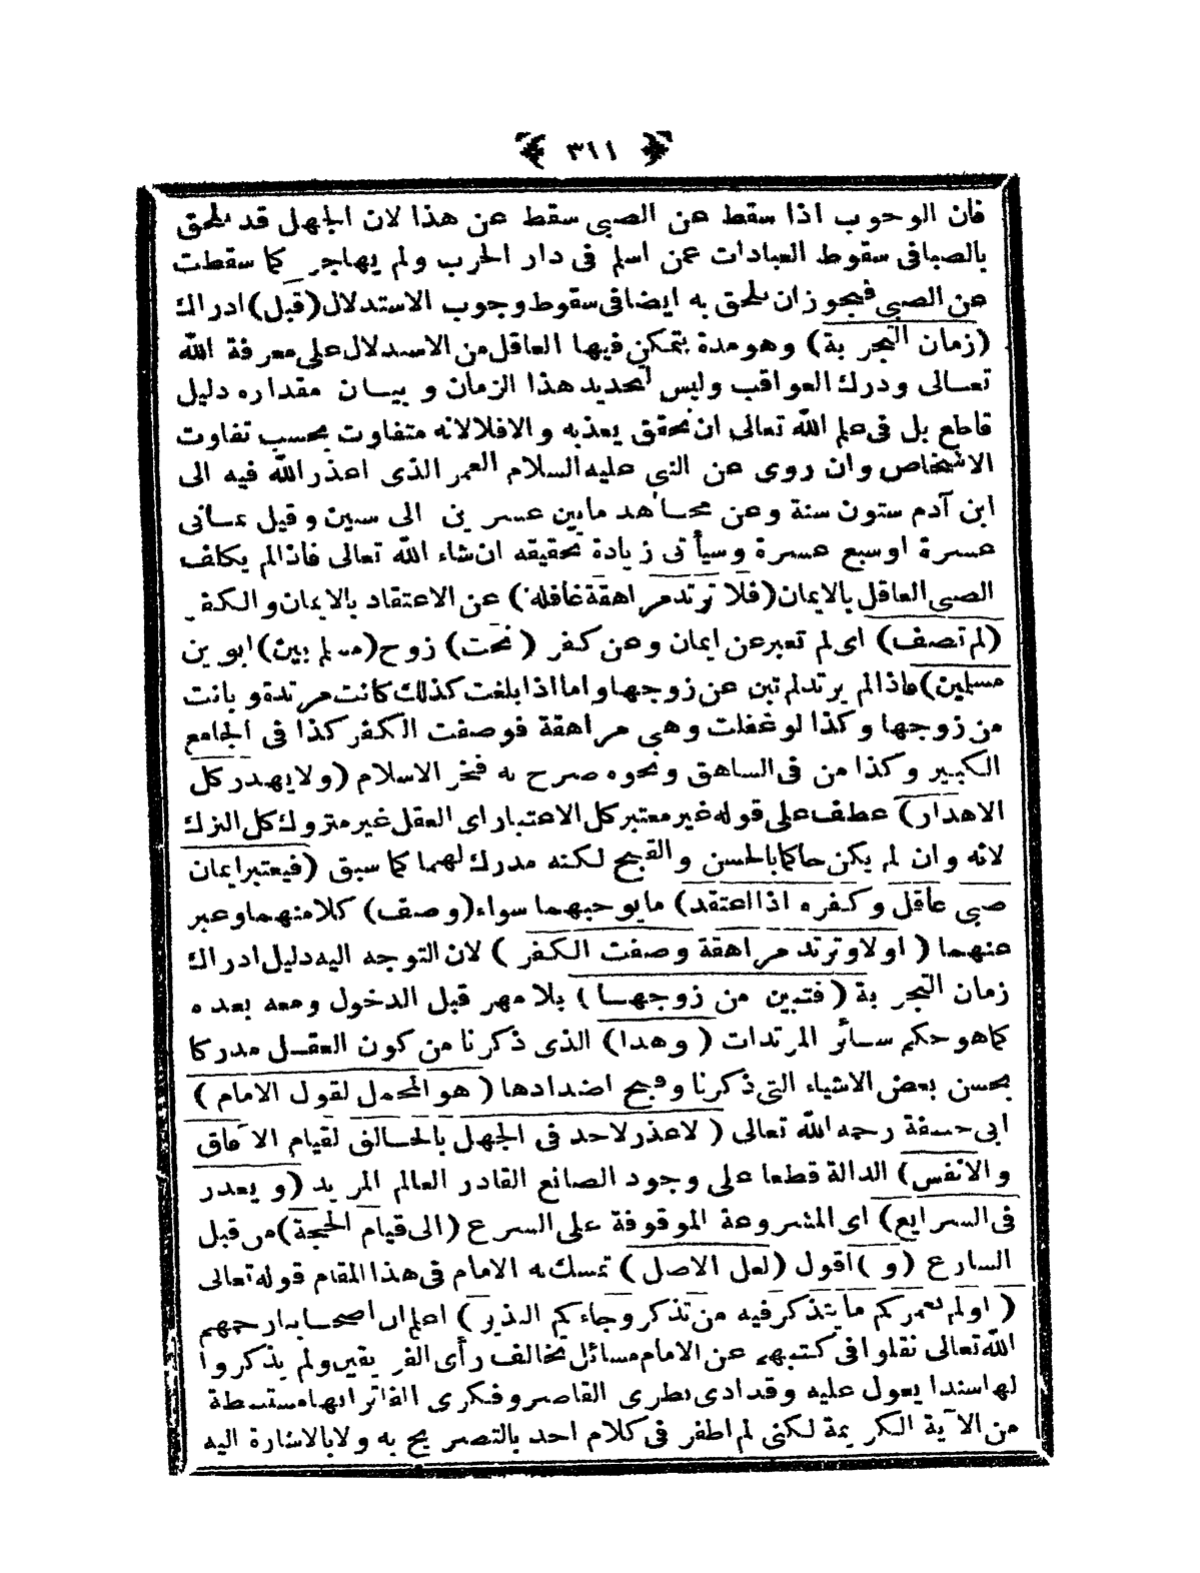 ﴿ ٣١١ ﴾
فان الوجوب اذا سقط عن الصبى سقط عن هذا لان الجهل قد يلحق
بالصبا فى سقوط العبادات عمن اسلم فى دار الحرب ولم يهاجر كما سقطت
عن الصبى فيجوز ان يلحق به ايضا فى سقوط وجوب الاستدلال (قبل) ادراك
(زمان التجربة) وهو مدة يتمكن فيها العاقل من الاستدلال على معرفة الله
تعالى ودرك العواقب وليس لتحديد هذا الزمان وبيان مقداره دليل
قاطع بل فى علم الله تعالى ان تحقق يعذبه والا فلا لانه متفاوت بحسب تفاوت
الاشخاص وان روى عن النبى عليه السلام العمر الذى اعذر الله فيه الى
ابن آدم ستون سنة وعن مجاهد مابين عشرين الى ستين وقيل ثمانى
عشرة او سبع عشرة وسيأتى زيادة تحقيقه ان شاء الله تعالى فاذا لم يكلف
الصبى العاقل بالايمان (فلا ترتد مراهقة غافلة) عن الاعتقاد بالايمان والكفر
(لم تصف) اى لم تعبر عن ايمان وعن كفر (تحت) زوج (مسلم بين) ابوين
مسلمين) فاذا لم يرتد لم تبن عن زوجها واما اذا بلغت كذلك كانت مرتدة وبانت
من زوجها وكذا لو غفلت وهى مراهقة فوصفت الكفر كذا فى الجامع
الكبير وكذا من فى الشاهق ونحوه صرح به فخر الاسلام (ولا يهدر كل
الاهدار) عطف على قوله غير معتبر كل الاعتبار اى العقل غير متروك كل الترك
لانه وان لم يكن حاكما بالحسن والقبح لكنه مدرك لهما كما سبق (فيعتبر ايمان
صبى عاقل وكفره اذا اعتقد) ما يوجبهما سواء (وصف) كلا منهما وعبر
عنهما (اولا وترتد مراهقة وصفت الكفر) لان التوجه اليه دليل ادراك
زمان التجربة (فتبين من زوجها) بلا مهر قبل الدخول ومعه بعده
كما هو حكم سائر المرتدات (وهذا) الذى ذكرنا من كون العقل مدركا
بحسن بعض الاشياء التى ذكرنا وقبح اضدادها (هو المحمل لقول الامام)
ابى حنيفة رحمه الله تعالى (لا عذر لاحد فى الجهل بالخالق لقيام الآفاق
والانفس) الدالة قطعا على وجود الصانع القادر العالم المريد (ويعذر
فى الشرايع) اى المشروعة الموقوفة على الشرع (الى قيام الحجة) من قبل
الشارع (و) اقول (لعل الاصل) تمسك به الامام فى هذا المقام قوله تعالى
(اولم نعمركم ما يتذكر فيه من تذكر وجاءكم النذير) اعلم ان اصحابنا رحمهم
الله تعالى نقلوا فى كتبهم عن الامام مسائل تخالف رأى الفريقين ولم يذكروا
لها سندا يعول عليه وقد ادى نظرى القاصر وفكرى الفاتر انها مستنبطة
من الآية الكريمة لكنى لم اظفر فى كلام احد بالتصريح به ولا بالاشارة اليه